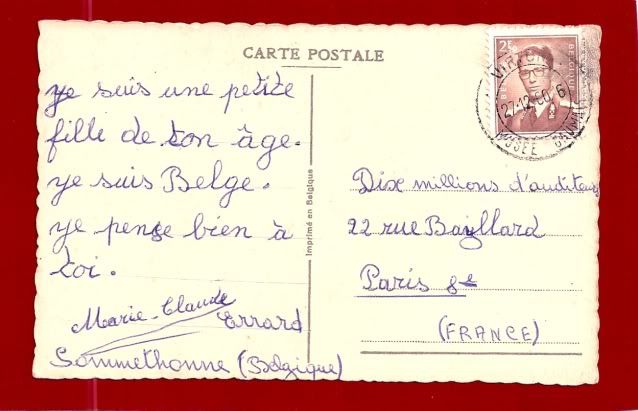 CARTE POSTALE
je suis une petite
fille de ton âge.
je suis Belge.
je pense bien à
toi.
Marie-Claude
Errard
Sommethonne (Belgique)
Imprimé en Belgique
2F
VIRTON
27-12-60
MUSÉE GAUMAIS
Dix millions d'auditeurs
22 rue Bayllard
Paris 8e
(FRANCE)